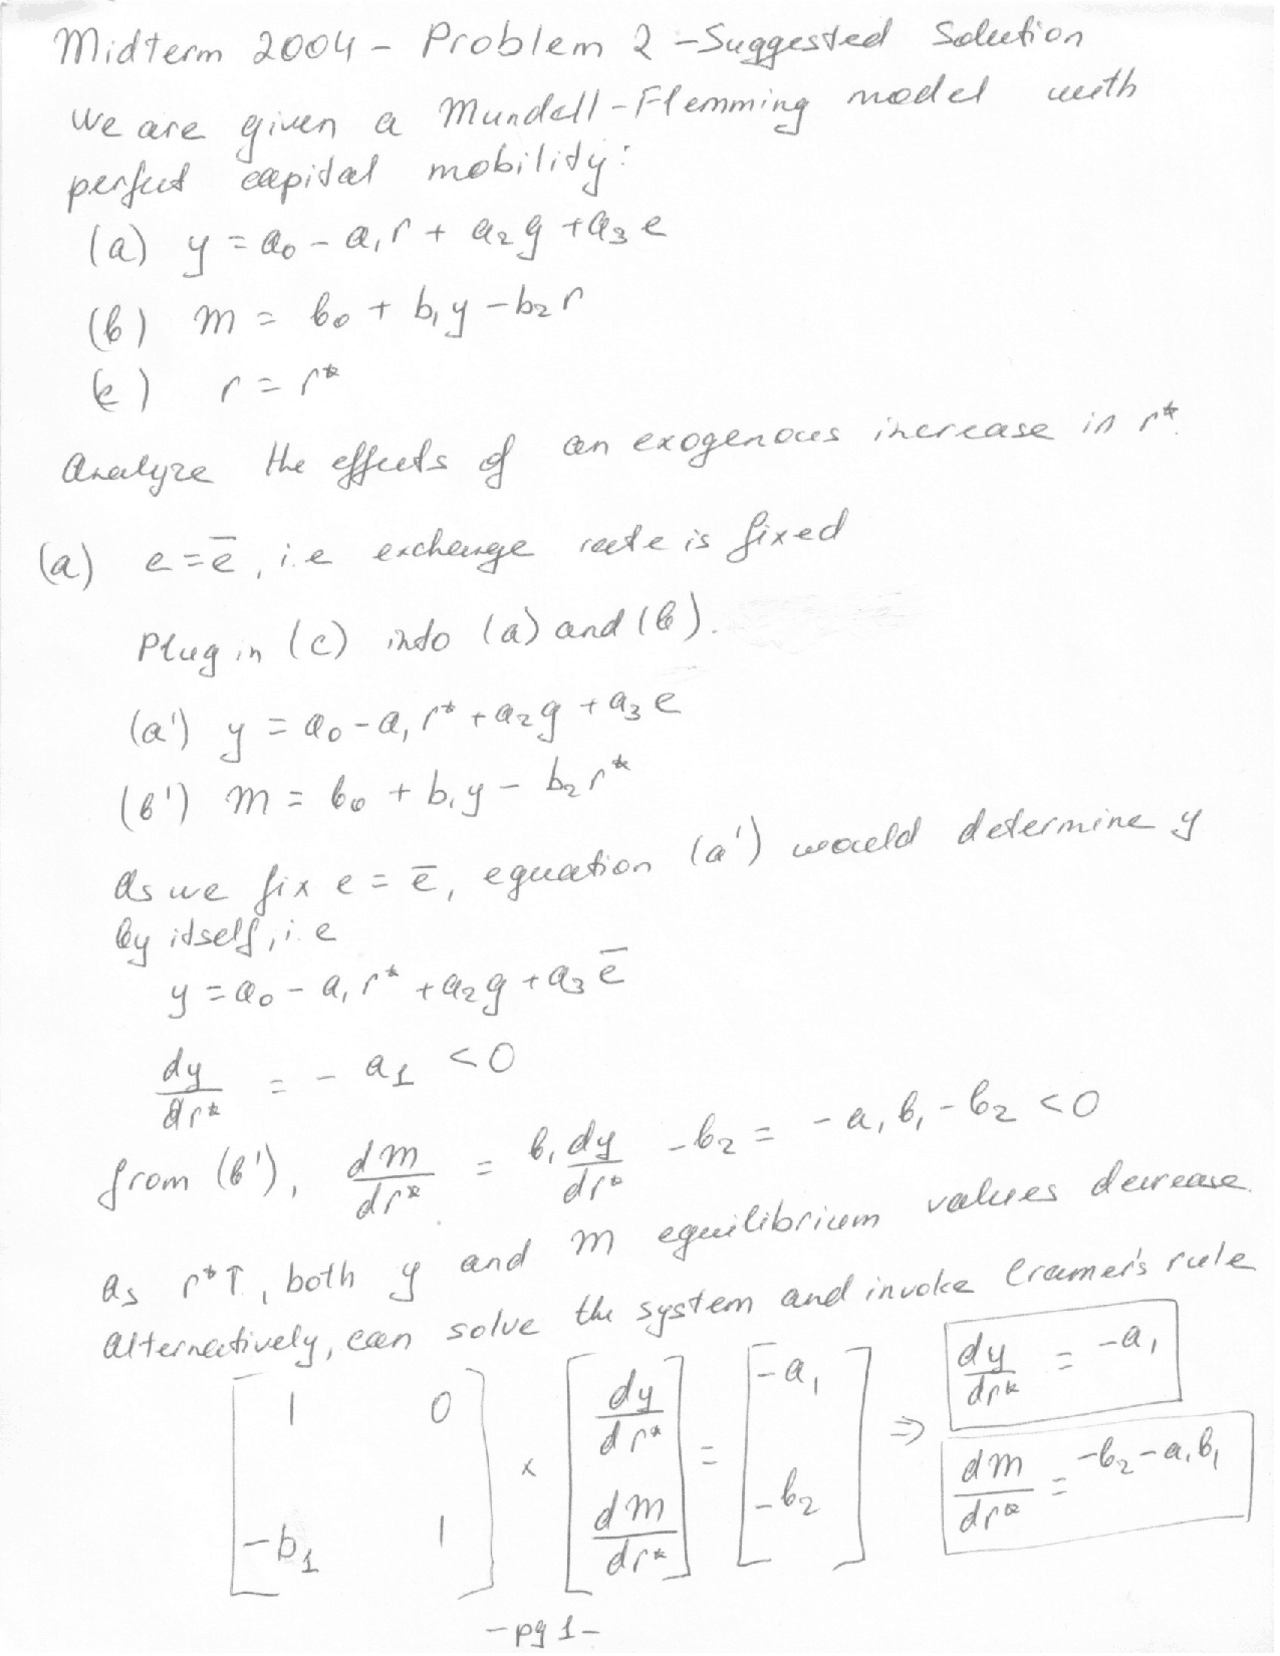 Midterm 2004 - Problem 2 - Suggested Solution
We are given a Mundell-Flemming model with
perfect capital mobility:
(a) y = a₀ - a₁r + a₂g + a₃e
(b) m = b₀ + b₁y - b₂r
(c) r = r*
Analyze the effects of an exogenous increase in r*.
(a) e = ē, i.e exchange rate is fixed
Plug in (c) into (a) and (b).
(a') y = a₀ - a₁r* + a₂g + a₃e
(b') m = b₀ + b₁y - b₂r*
As we fix e = ē, equation (a') would determine y
by itself, i.e
y = a₀ - a₁r* + a₂g + a₃ē
dy/dr* = - a₁ < 0
from (b'), dm/dr* = b₁ dy/dr* - b₂ = - a₁b₁ - b₂ < 0
As r*↑, both y and m equilibrium values decrease.
Alternatively, can solve the system and invoke Cramer's rule
[1 0; -b₁ 1] × [dy/dr*; dm/dr*] = [-a₁; -b₂] ⇒ dy/dr* = -a₁
dm/dr* = -b₂ - a₁b₁
- pg 1 -